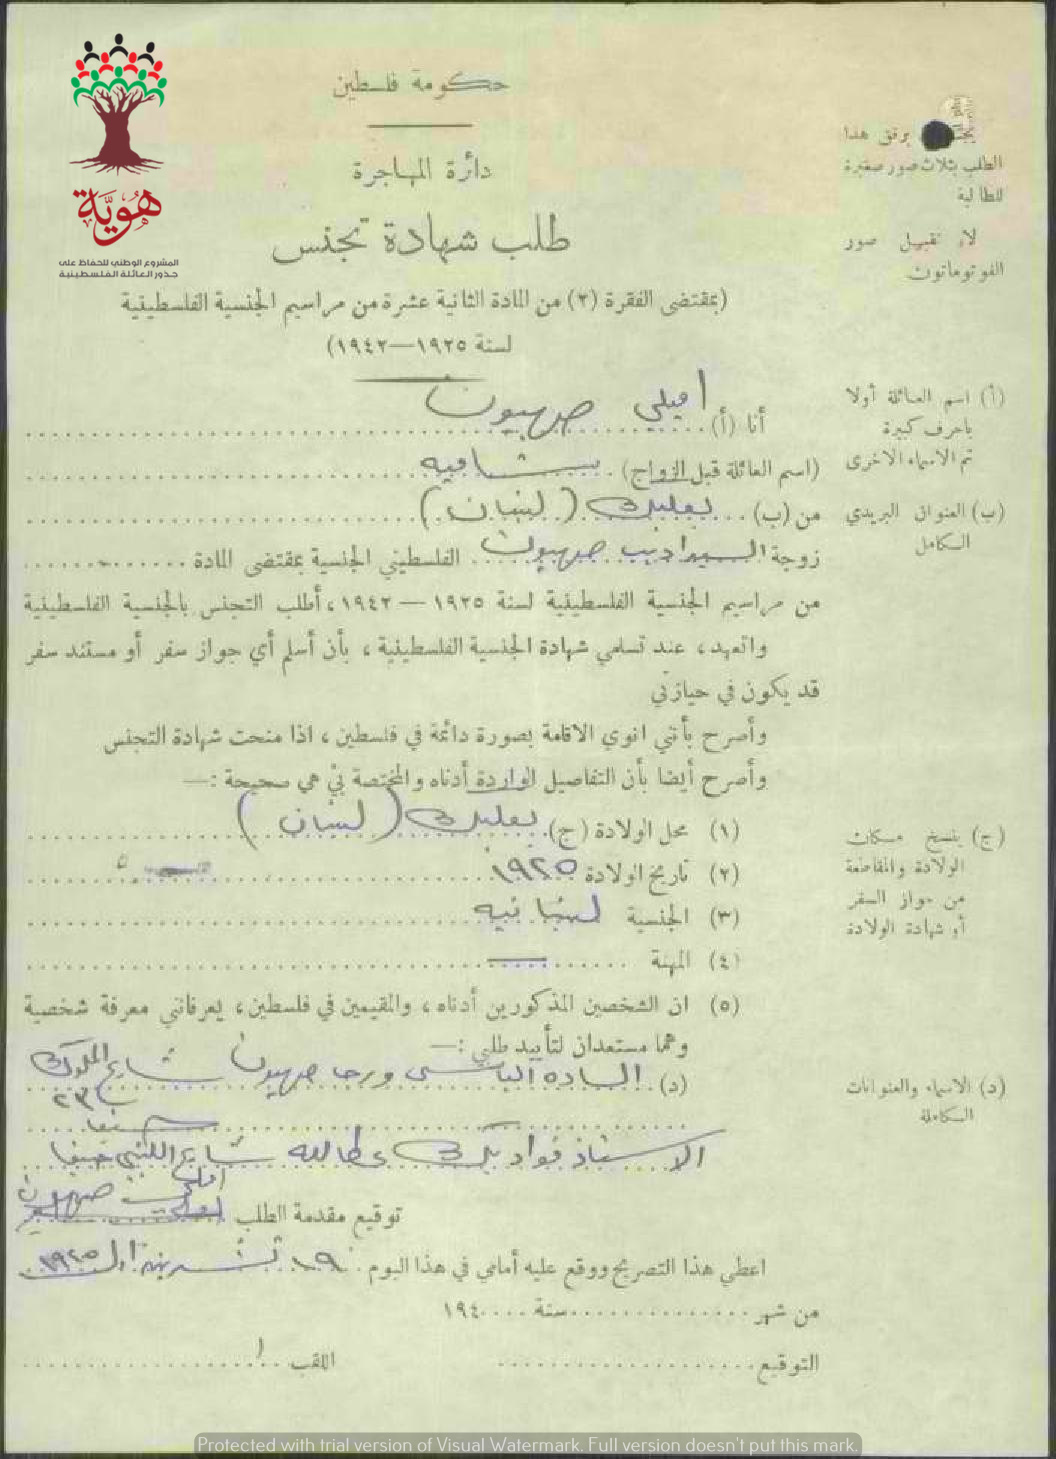 هوية
المشروع الوطني للحفاظ على
جذور العائلة الفلسطينية
حكومة فلسطين
دائرة المهاجرة
طلب شهادة تجنس
(بمقتضى الفقرة (٢) من المادة الثانية عشرة من مراسيم الجنسية الفلسطينية
لسنة ١٩٢٥—١٩٤٢)
يرفق هذا
الطلب بثلاث صور صغيرة
للطالبة
لا تقبل صور
الفوتوماتون
أنا (أ) اميلي صهيون
(أ) اسم العائلة أولا
باحرف كبيرة
ثم الاسماء الاخرى
(اسم العائلة قبل الزواج)
من (ب) بعلبك (لبنان)
(ب) العنوان البريدي
الكامل
زوجة السيد اديب صهيون الفلسطيني الجنسية بمقتضى المادة
من مراسيم الجنسية الفلسطينية لسنة ١٩٢٥ — ١٩٤٢، أطلب التجنس بالجنسية الفلسطينية
واتعهد، عند تسلمي شهادة الجنسية الفلسطينية، بأن أسلم أي جواز سفر أو مستند سفر
قد يكون في حيازتي
وأصرح بأنني انوي الاقامة بصورة دائمة في فلسطين، اذا منحت شهادة التجنس
وأصرح أيضا بأن التفاصيل الواردة أدناه والمختصة بي هي صحيحة :—
(١) محل الولادة (ج) بعلبك (لبنان)
(٢) تاريخ الولادة ١٩٢٥
(٣) الجنسية لبنانيه
(٤) المهنة —
(ج) ينسخ مكان
الولادة والمقاطعة
من جواز السفر
أو شهادة الولادة
(٥) ان الشخصين المذكورين أدناه، والمقيمين في فلسطين، يعرفانني معرفة شخصية
وهما مستعدان لتأييد طلبي :—
(د) الساده الياس ورجا صهيون شارع الملوك
٢٣
حيفا
الاستاذ فواد بك عطالله شارع اللنبي حيفا
(د) الاسماء والعنوانات
الكاملة
توقيع مقدمة الطلب صهيون
اعطي هذا التصريح ووقع عليه أمامي في هذا اليوم ١٩ تشرين اول
من شهر سنة ١٩٤
التوقيع اللقب
Protected with trial version of Visual Watermark. Full version doesn't put this mark.